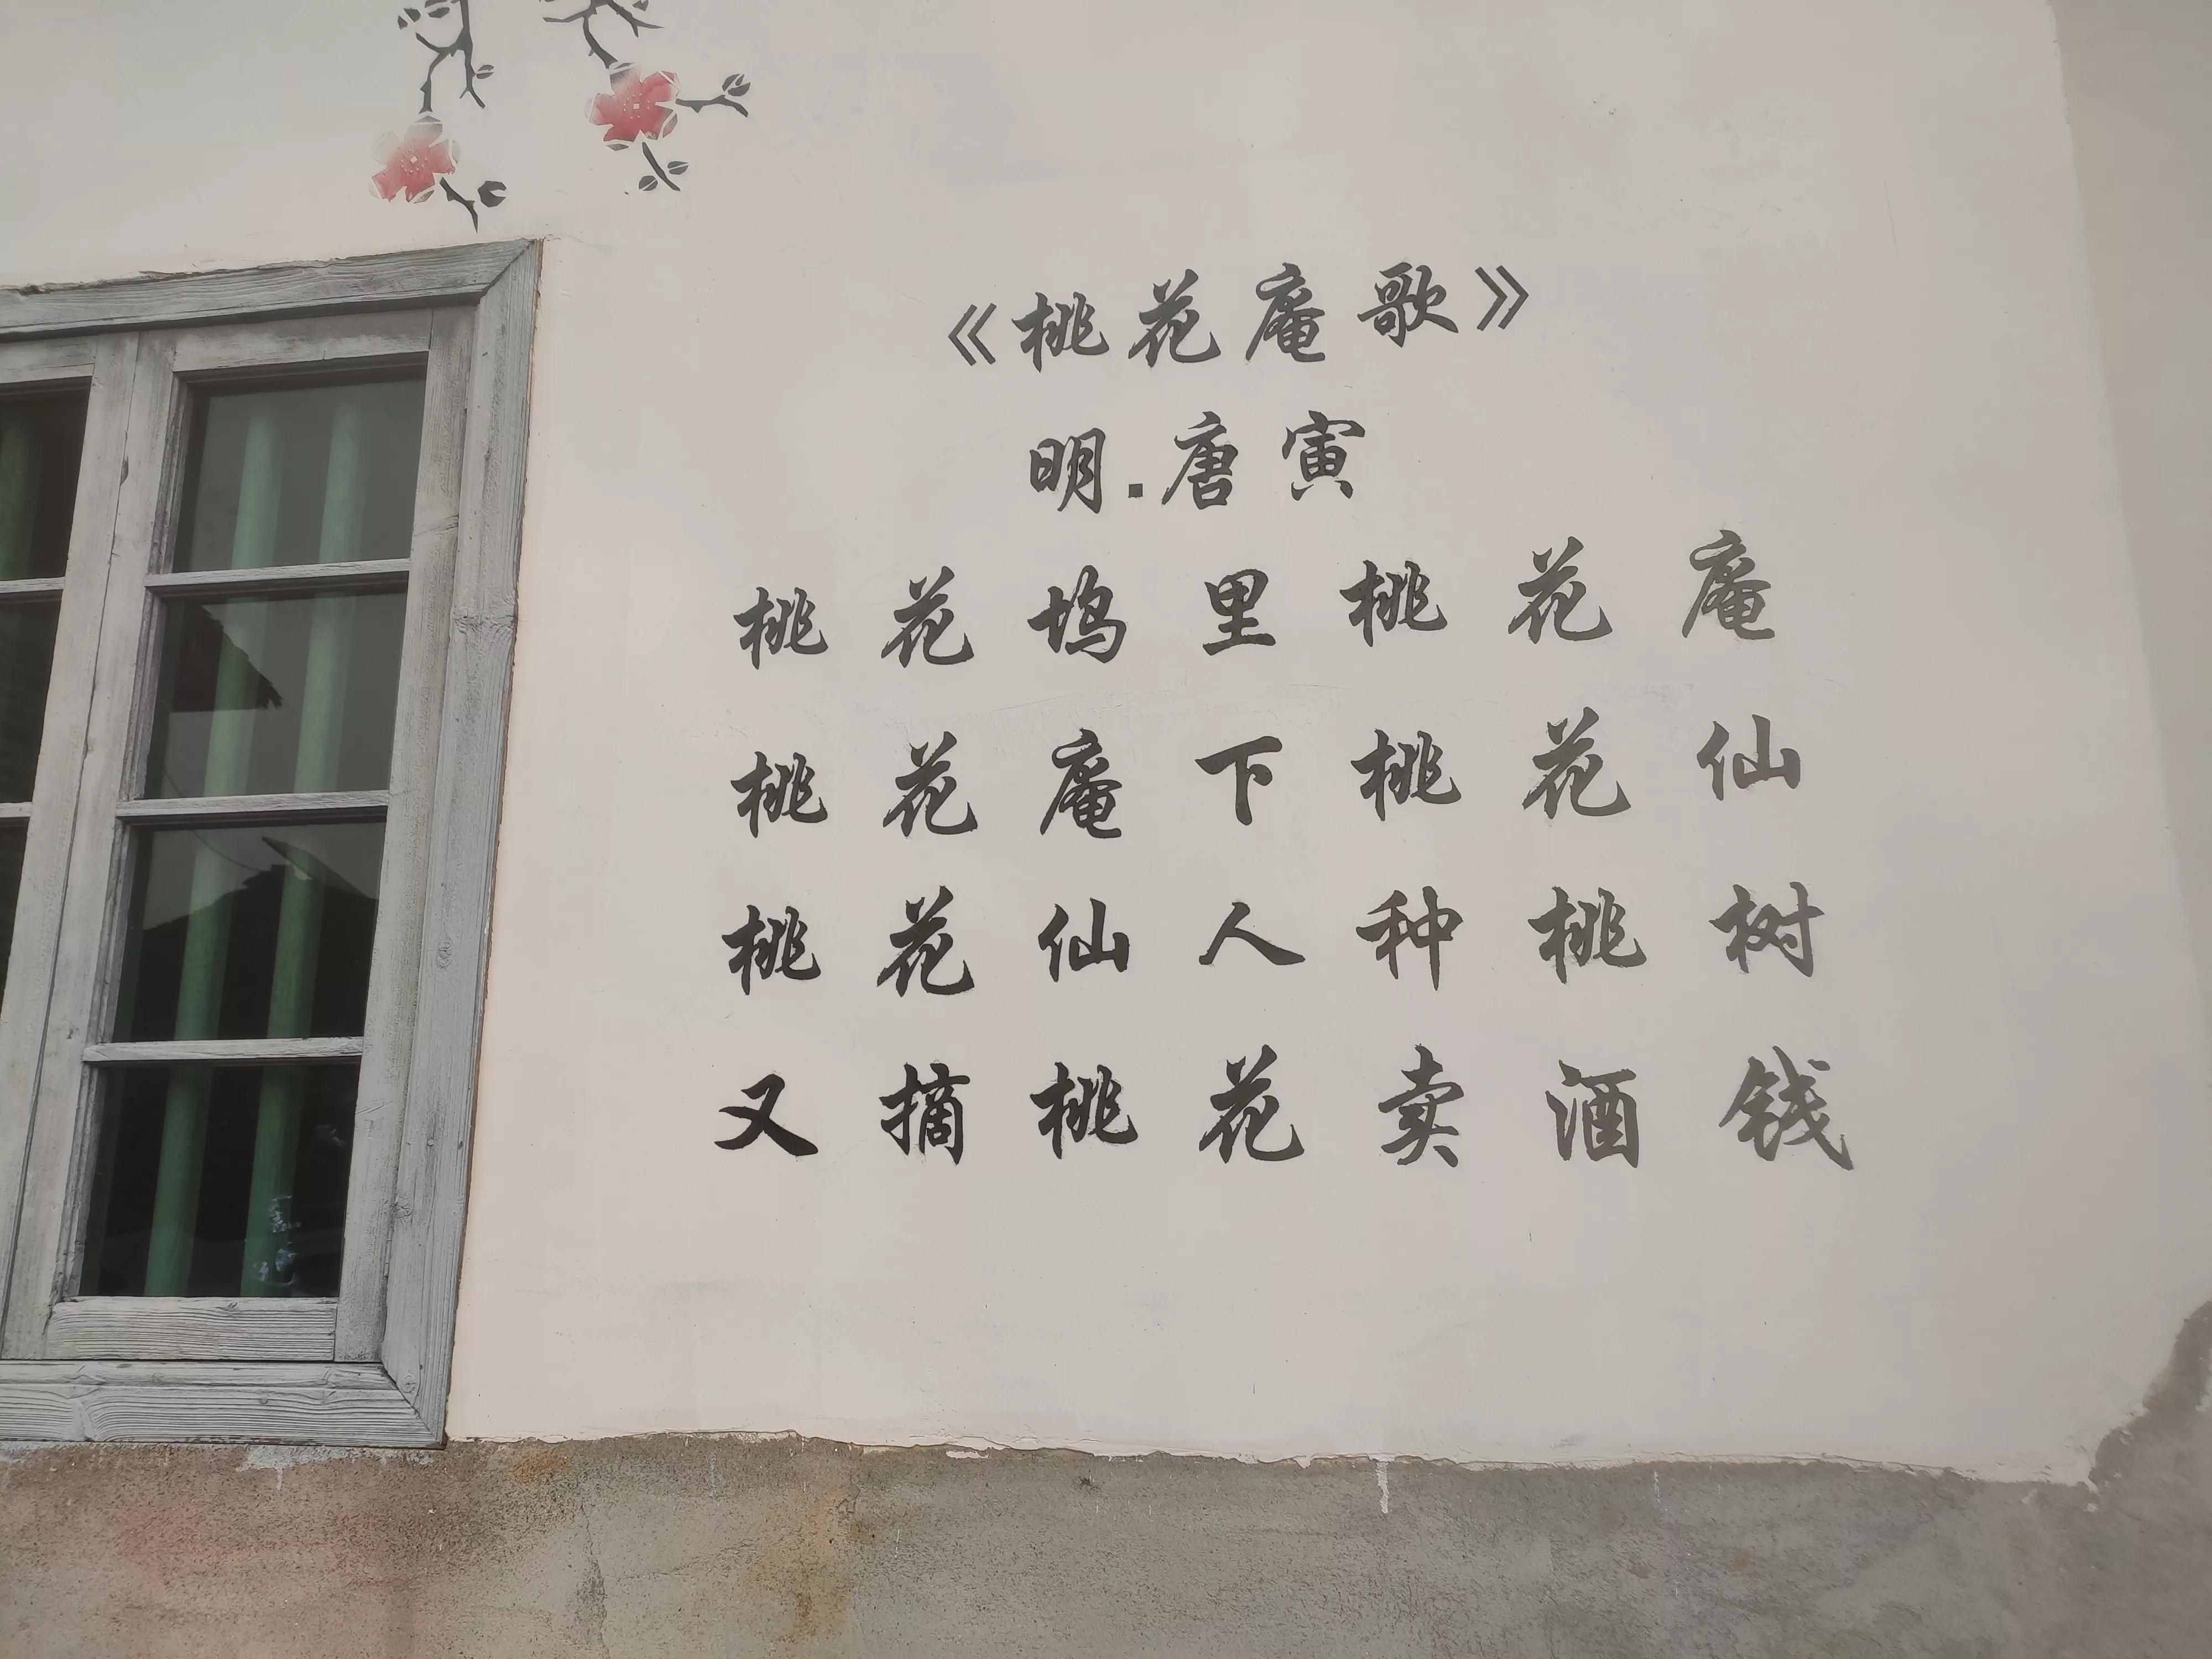 《桃花庵歌》
明.唐寅
桃花坞里桃花庵
桃花庵下桃花仙
桃花仙人种桃树
又摘桃花卖酒钱